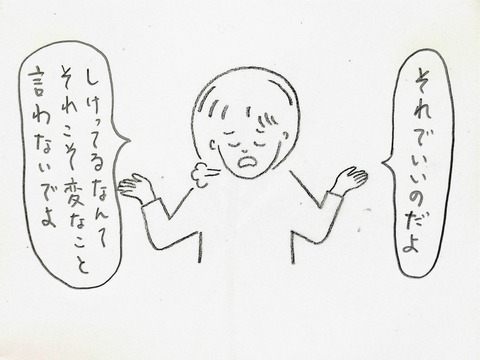 それでいいのだよ
しけってるなんて
それこそ変なこと
言わないでよ